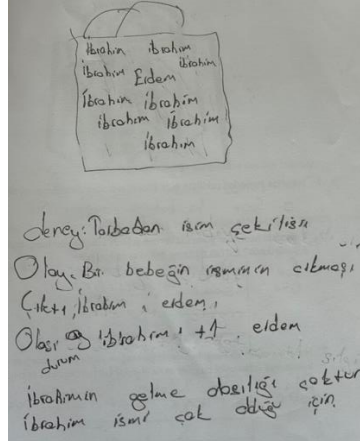 İbrahim ibrahim
İbrahim Erdem ibrahim
İbrahim ibrahim
ibrahim ibrahim
ibrahim
deney: Torbadan isim çekilişi
Olay. Bir bebeğin isminin çıkması
Çıktı, İbrahim, erdem,
Olası 9 ibrahim, +1 erdem
durum
İbrahimin gelme olasılığı çoktur
İbrahim ismi çok olduğu için.